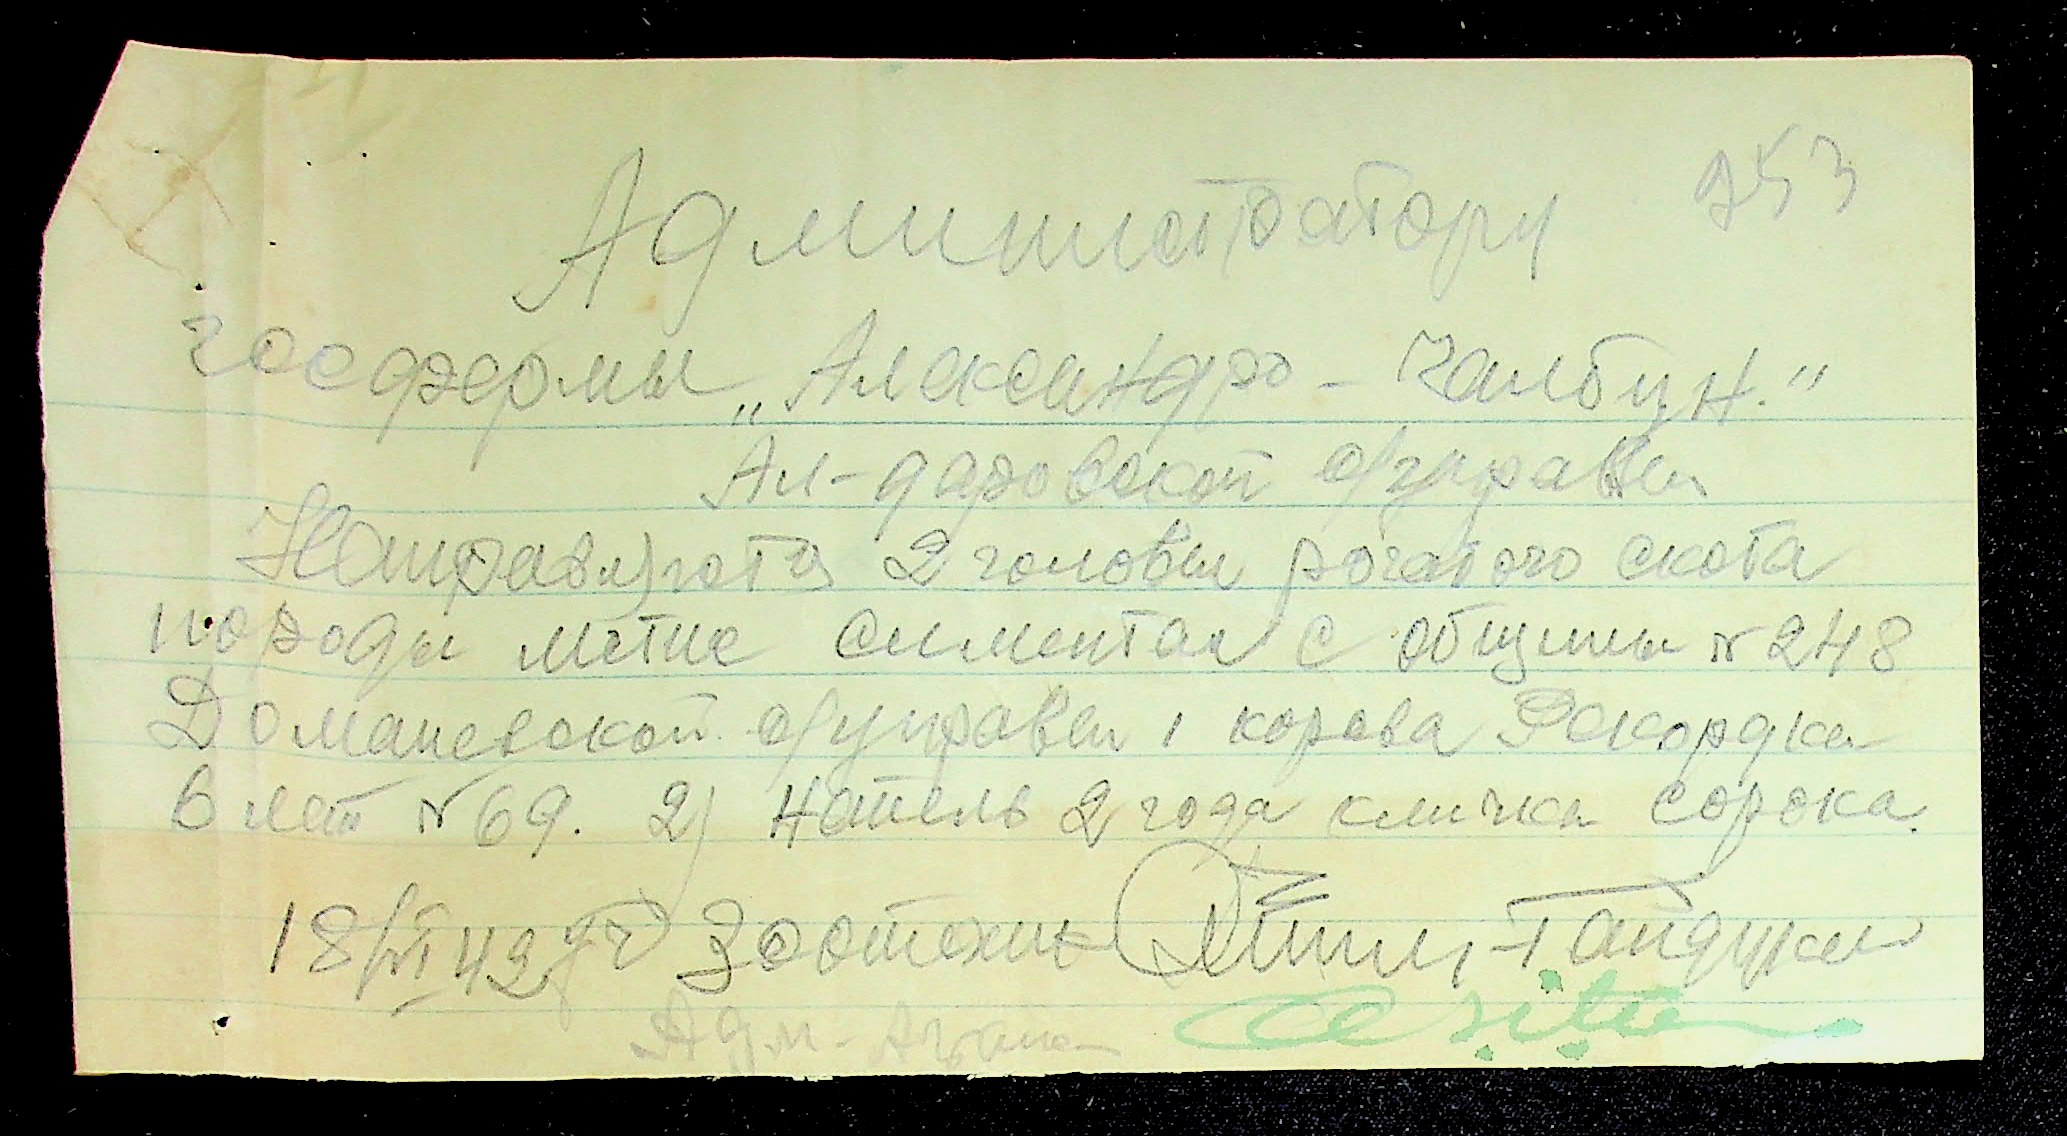 253
Администратору
госфермы „Александро-Чалбун."
Ал-даровской р/управы
Направляются 2 головы рогатого скота
породы метис симентал с общины № 248
Доманевской р/управы 1 корова Рекордка
6 лет № 69. 2) Нетель 2 года кличка Сорока.
18/VI 42 г Зоотехник
Адм-